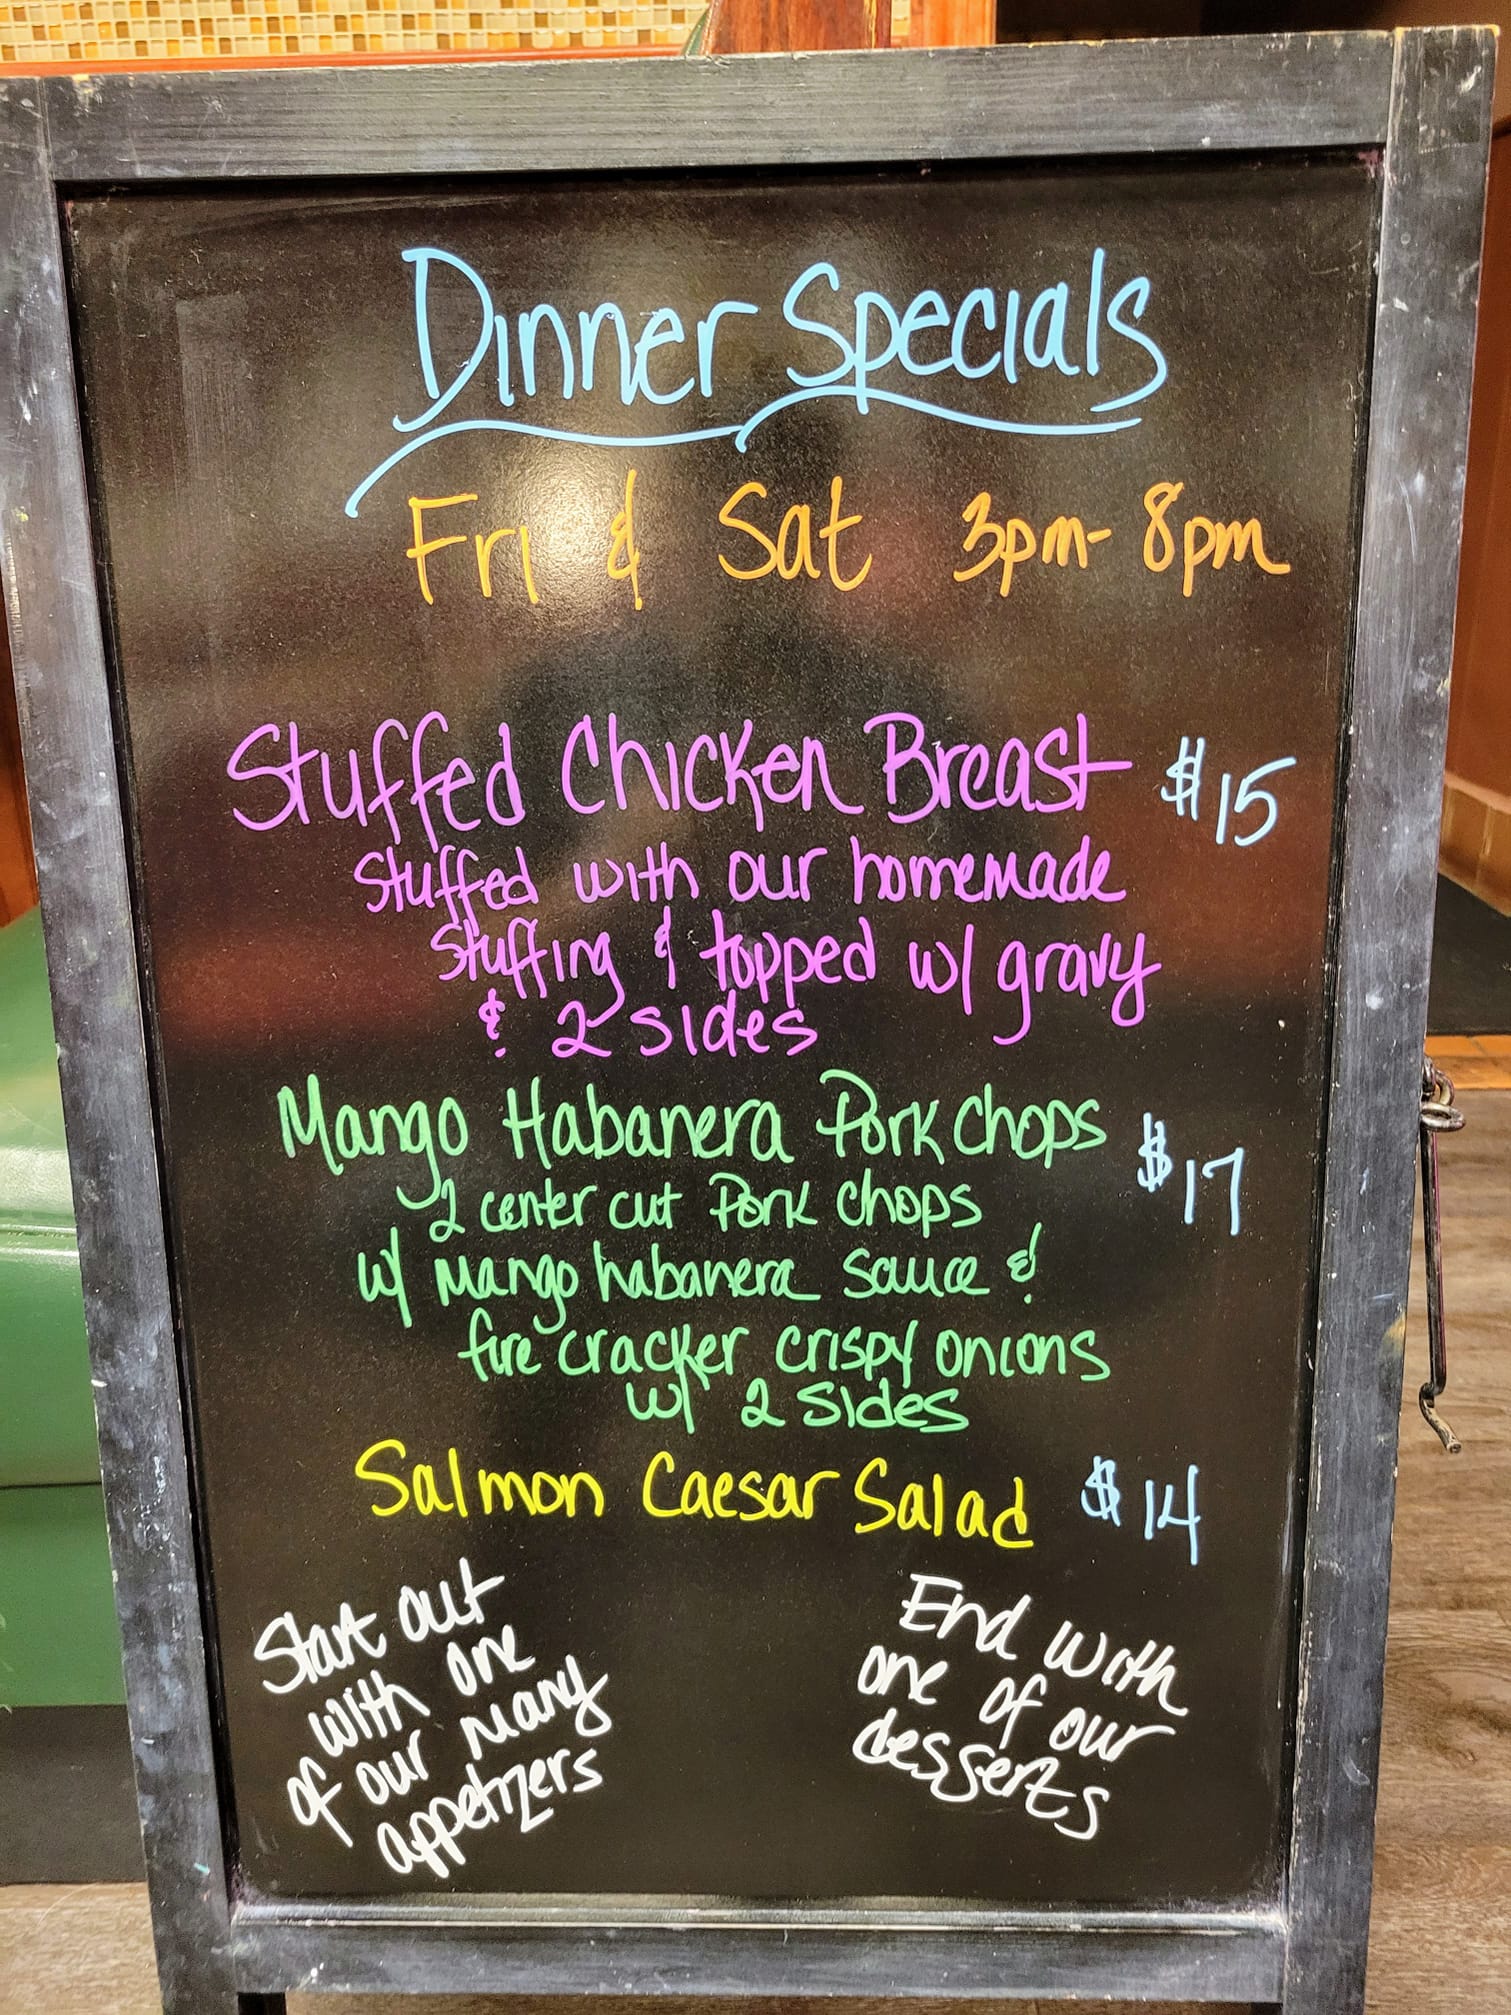 Dinner Specials
Fri & Sat 3pm-8pm
Stuffed Chicken Breast $15
Stuffed with our homemade
stuffing & topped w/ gravy
& 2 sides
Mango Habanera Pork Chops $17
2 center cut Pork Chops
w/ Mango habanera Sauce &
fire cracker crispy onions
w/ 2 sides
Salmon Caesar Salad $14
Start out
with one
of our many
appetizers
End with
one of our
desserts